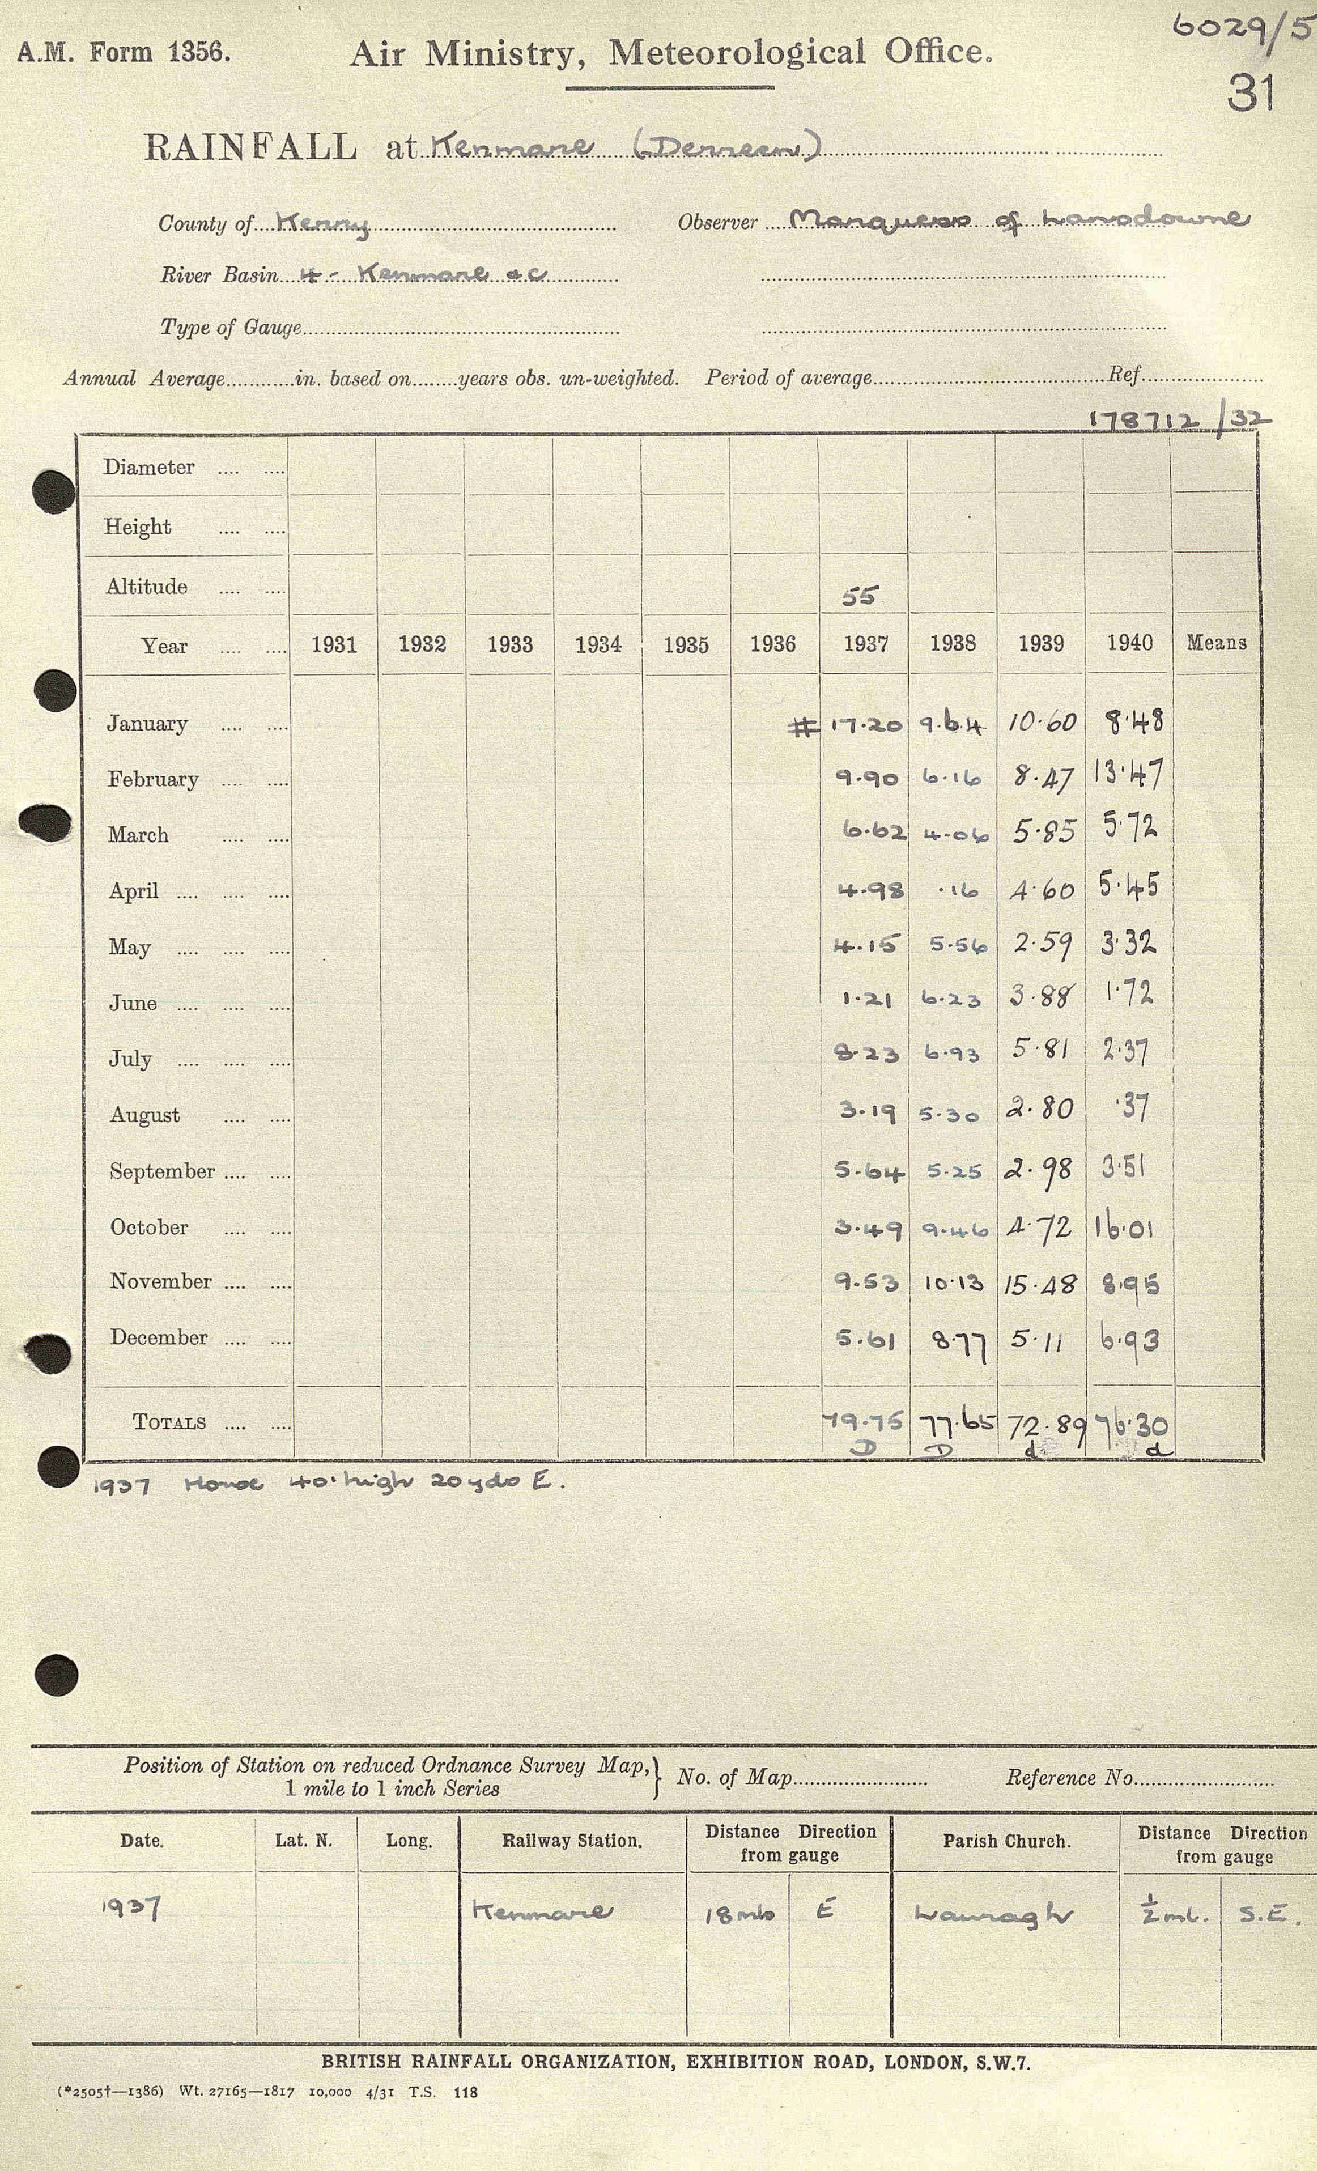 6029/5
A.M. Form 1356. Air Ministry, Meteorological Office.
31
RAINFALL at Kenmare (Derreen)
County of Kerry Observer Marquess of Lansdowne
River Basin 4 - Kenmare &c
Type of Gauge
Annual Average in. based on years obs. un-weighted. Period of average Ref
178712/32
Diameter
Height
Altitude 55
Year 1931 1932 1933 1934 1935 1936 1937 1938 1939 1940 Means
January # 17.20 9.64 10.60 8.48
February 9.90 6.16 8.47 13.47
March 6.62 4.06 5.85 5.72
April 4.98 .16 4.60 5.45
May 4.15 5.56 2.59 3.32
June 1.21 6.23 3.88 1.72
July 8.23 6.93 5.81 2.37
August 3.19 5.30 2.80 .37
September 5.64 5.25 2.98 3.51
October 3.49 9.46 4.72 16.01
November 9.53 10.13 15.48 8.95
December 5.61 8.77 5.11 6.93
TOTALS 79.75 77.65 72.89 76.30
D D d d
1937 House 40' high 20 yds E.
Position of Station on reduced Ordnance Survey Map, 1 mile to 1 inch Series } No. of Map Reference No.
Date. Lat. N. Long. Railway Station. Distance Direction from gauge Parish Church. Distance Direction from gauge
1937 Kenmare 18 mls E Lauragh ½ ml. S.E.
BRITISH RAINFALL ORGANIZATION, EXHIBITION ROAD, LONDON, S.W.7.
(*2505†—1386) Wt. 27165—1817 10,000 4/31 T.S. 118